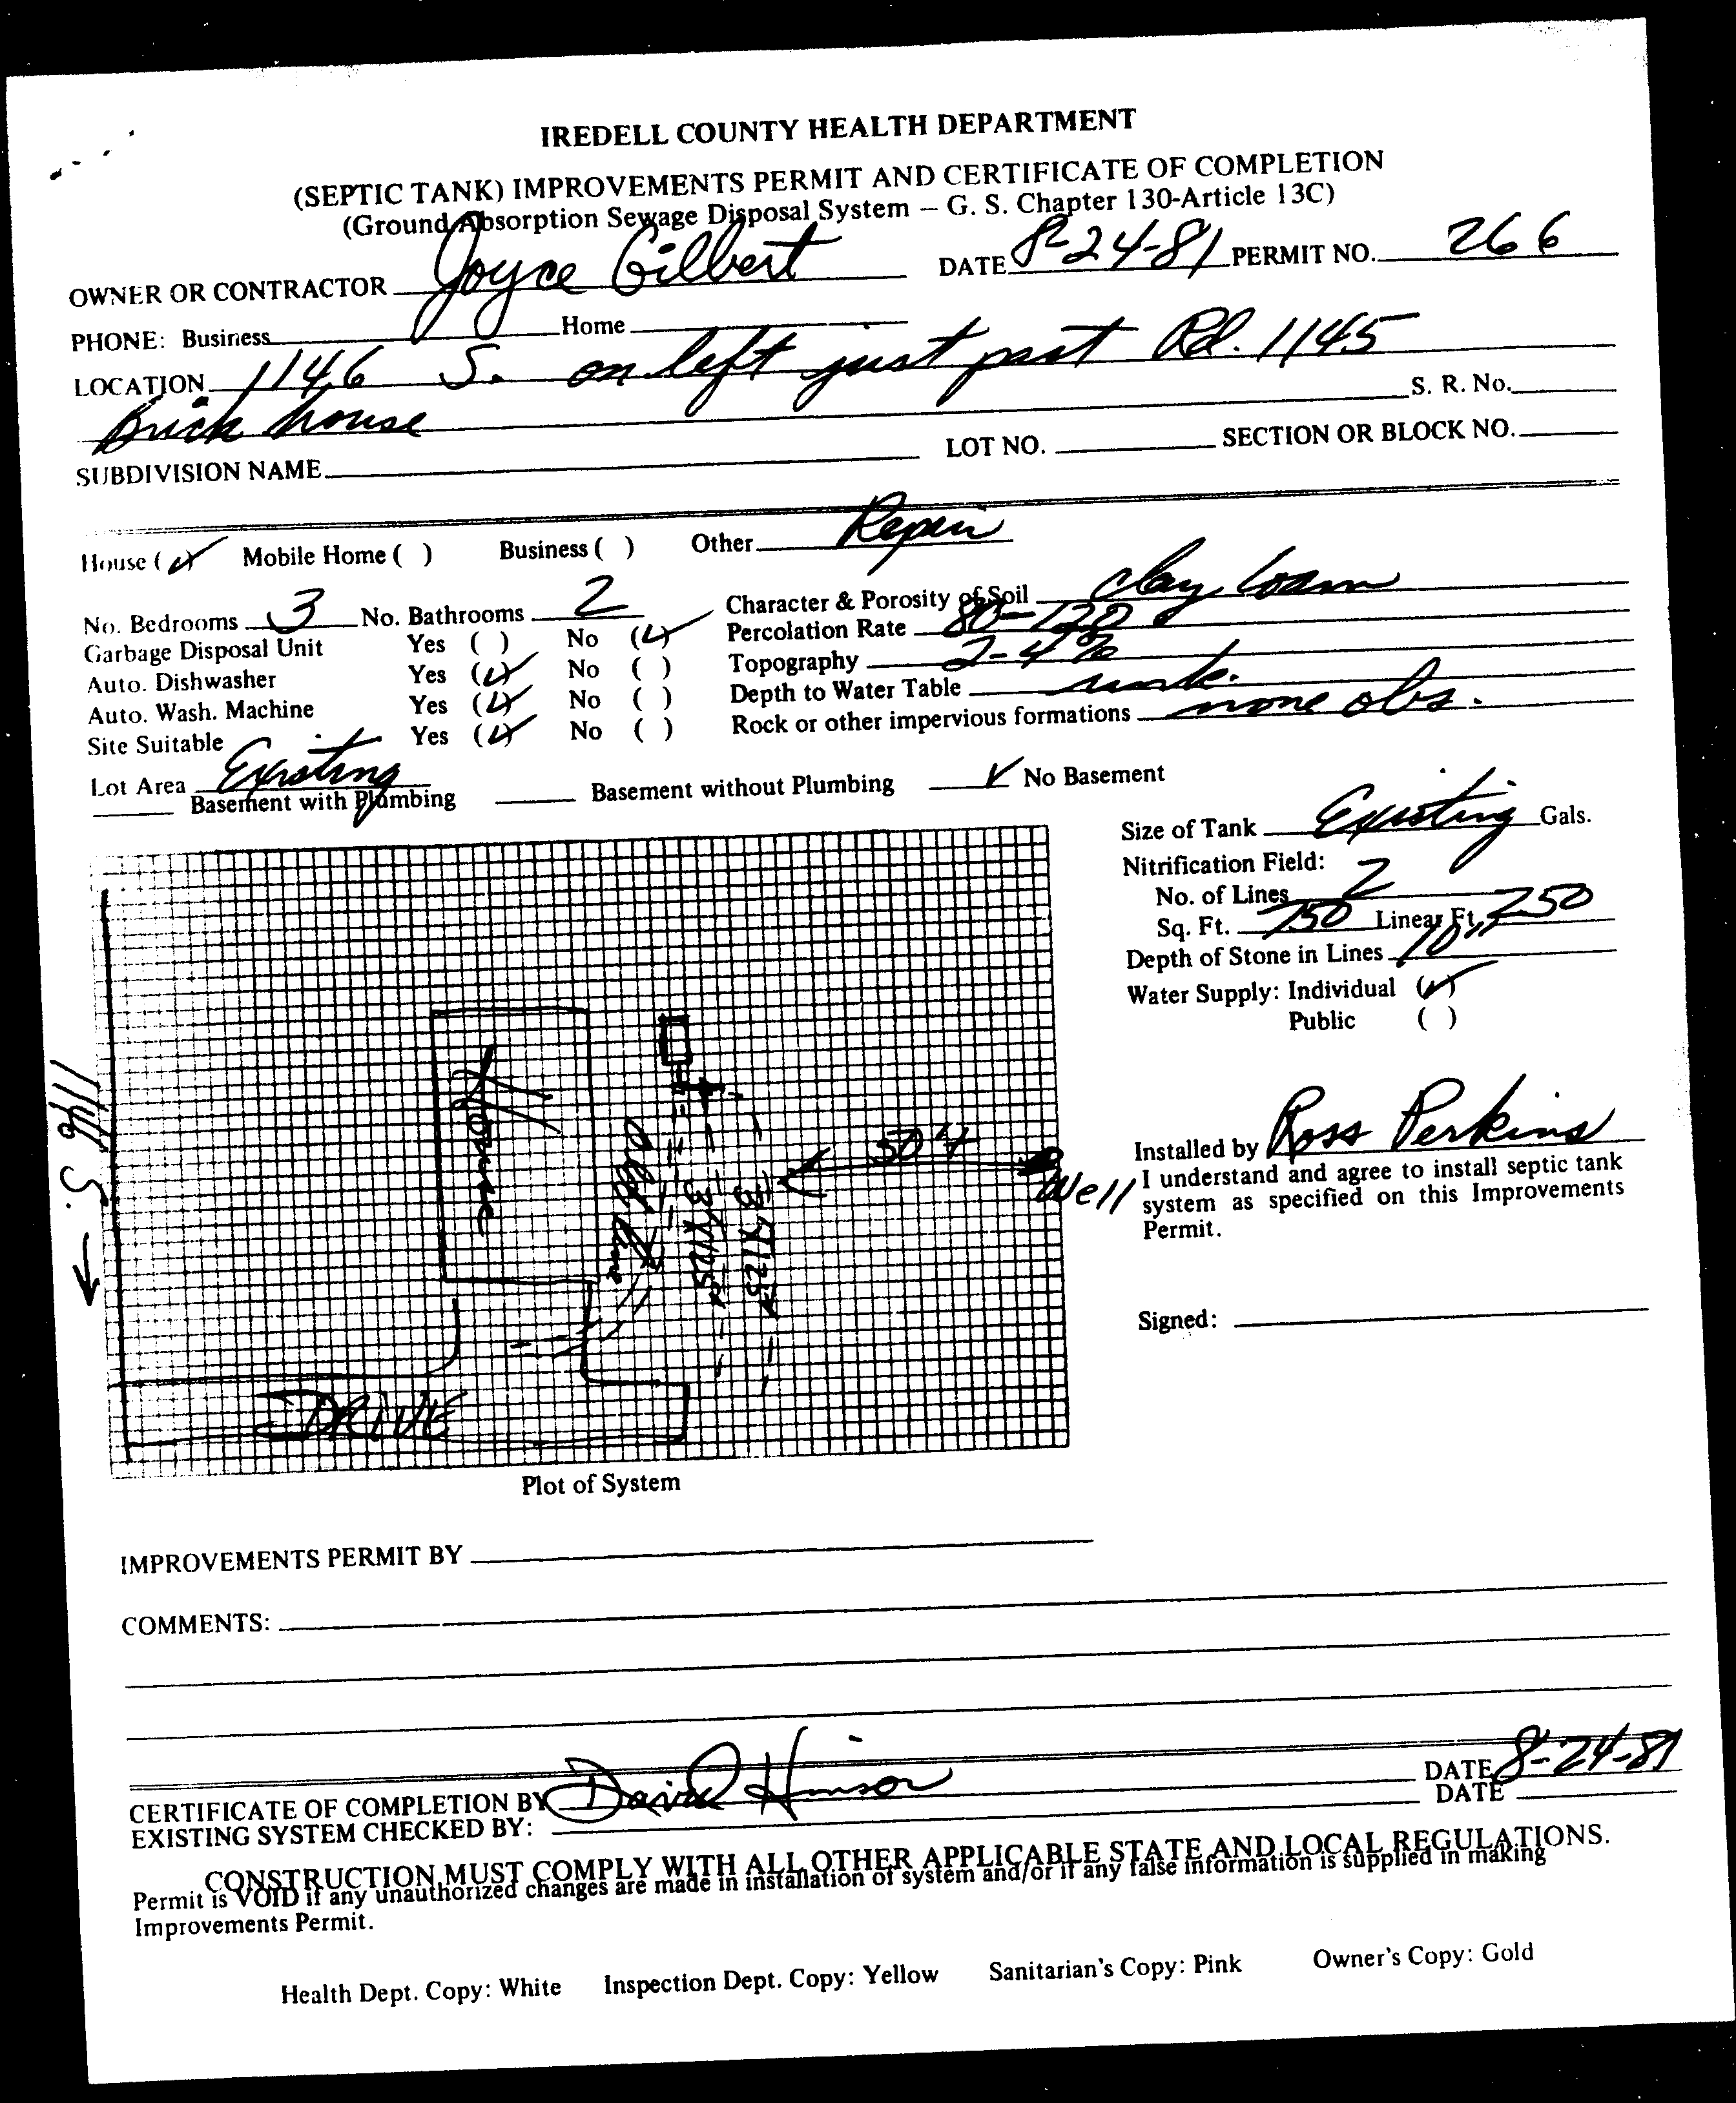 IREDELL COUNTY HEALTH DEPARTMENT
(SEPTIC TANK) IMPROVEMENTS PERMIT AND CERTIFICATE OF COMPLETION
(Ground Absorption Sewage Disposal System – G. S. Chapter 130-Article 13C)
OWNER OR CONTRACTOR Joyce Gilbert DATE 8-24-81 PERMIT NO. 266
PHONE: Business Home
LOCATION 1146 S. on left just past Rd. 1145
Brick house S. R. No.
SUBDIVISION NAME LOT NO. SECTION OR BLOCK NO.
House (✓) Mobile Home ( ) Business ( ) Other Repair
No. Bedrooms 3 No. Bathrooms 2 Character & Porosity of Soil clay loam
Garbage Disposal Unit Yes ( ) No (✓) Percolation Rate 80-120
Auto. Dishwasher Yes (✓) No ( ) Topography 2-4%
Auto. Wash. Machine Yes (✓) No ( ) Depth to Water Table unk.
Site Suitable Yes (✓) No ( ) Rock or other impervious formations none obs.
Lot Area Existing
Basement with Plumbing Basement without Plumbing ✓ No Basement
Size of Tank Existing Gals.
Nitrification Field:
No. of Lines 2
Sq. Ft. 750 Linear Ft. 250
Depth of Stone in Lines 10"
Water Supply: Individual (✓)
Public ( )
1146 S.
House
old line
3X125
3X125
50'+
Well
DRIVE
Installed by Ross Perkins
I understand and agree to install septic tank
system as specified on this Improvements
Permit.
Signed:
Plot of System
IMPROVEMENTS PERMIT BY
COMMENTS:
CERTIFICATE OF COMPLETION BY David Hinson DATE 8-24-81
EXISTING SYSTEM CHECKED BY: DATE
CONSTRUCTION MUST COMPLY WITH ALL OTHER APPLICABLE STATE AND LOCAL REGULATIONS.
Permit is VOID if any unauthorized changes are made in installation of system and/or if any false information is supplied in making
Improvements Permit.
Health Dept. Copy: White Inspection Dept. Copy: Yellow Sanitarian's Copy: Pink Owner's Copy: Gold